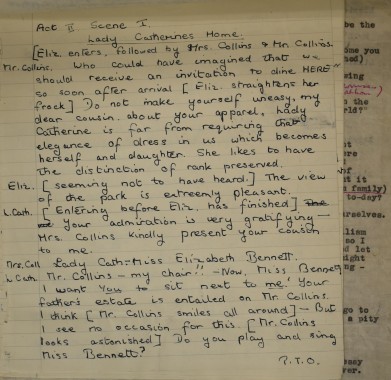 Act II Scene I.
Lady Catherines Home.
[Eliz. enters, followed by Mrs. Collins & Mr. Collins.
Mr. Collins. Who could have imagined that we
should receive an invitation to dine HERE
so soon after arrival [Eliz. straightens her
frock] Do not make yourself uneasy, my
dear cousin, about your apparel, Lady
Catherine is far from requiring that
elegance of dress in us which becomes
herself and daughter. She likes to have
the distinction of rank preserved.
Eliz. [seeming not to have heard.] The view
of the park is extreemly pleasant.
L. Cath. [Entering before Eliz. has finished]
Your admiration is very gratifying –
Mrs. Collins kindly present your cousin
to me.
Mrs. Coll Lady Cath: Miss Elizabeth Bennett.
L. Cath. Mr. Collins – my chair!! – Now, Miss Bennett
I want You to sit next to me! Your
father's estate is entailed on Mr. Collins.
I think [Mr. Collins smiles all around] – But
I see no occasion for this. [Mr. Collins
looks astonished] Do you play and sing
Miss Bennett?
P.T.O.
be the
family)
to-day?
go to
a pity